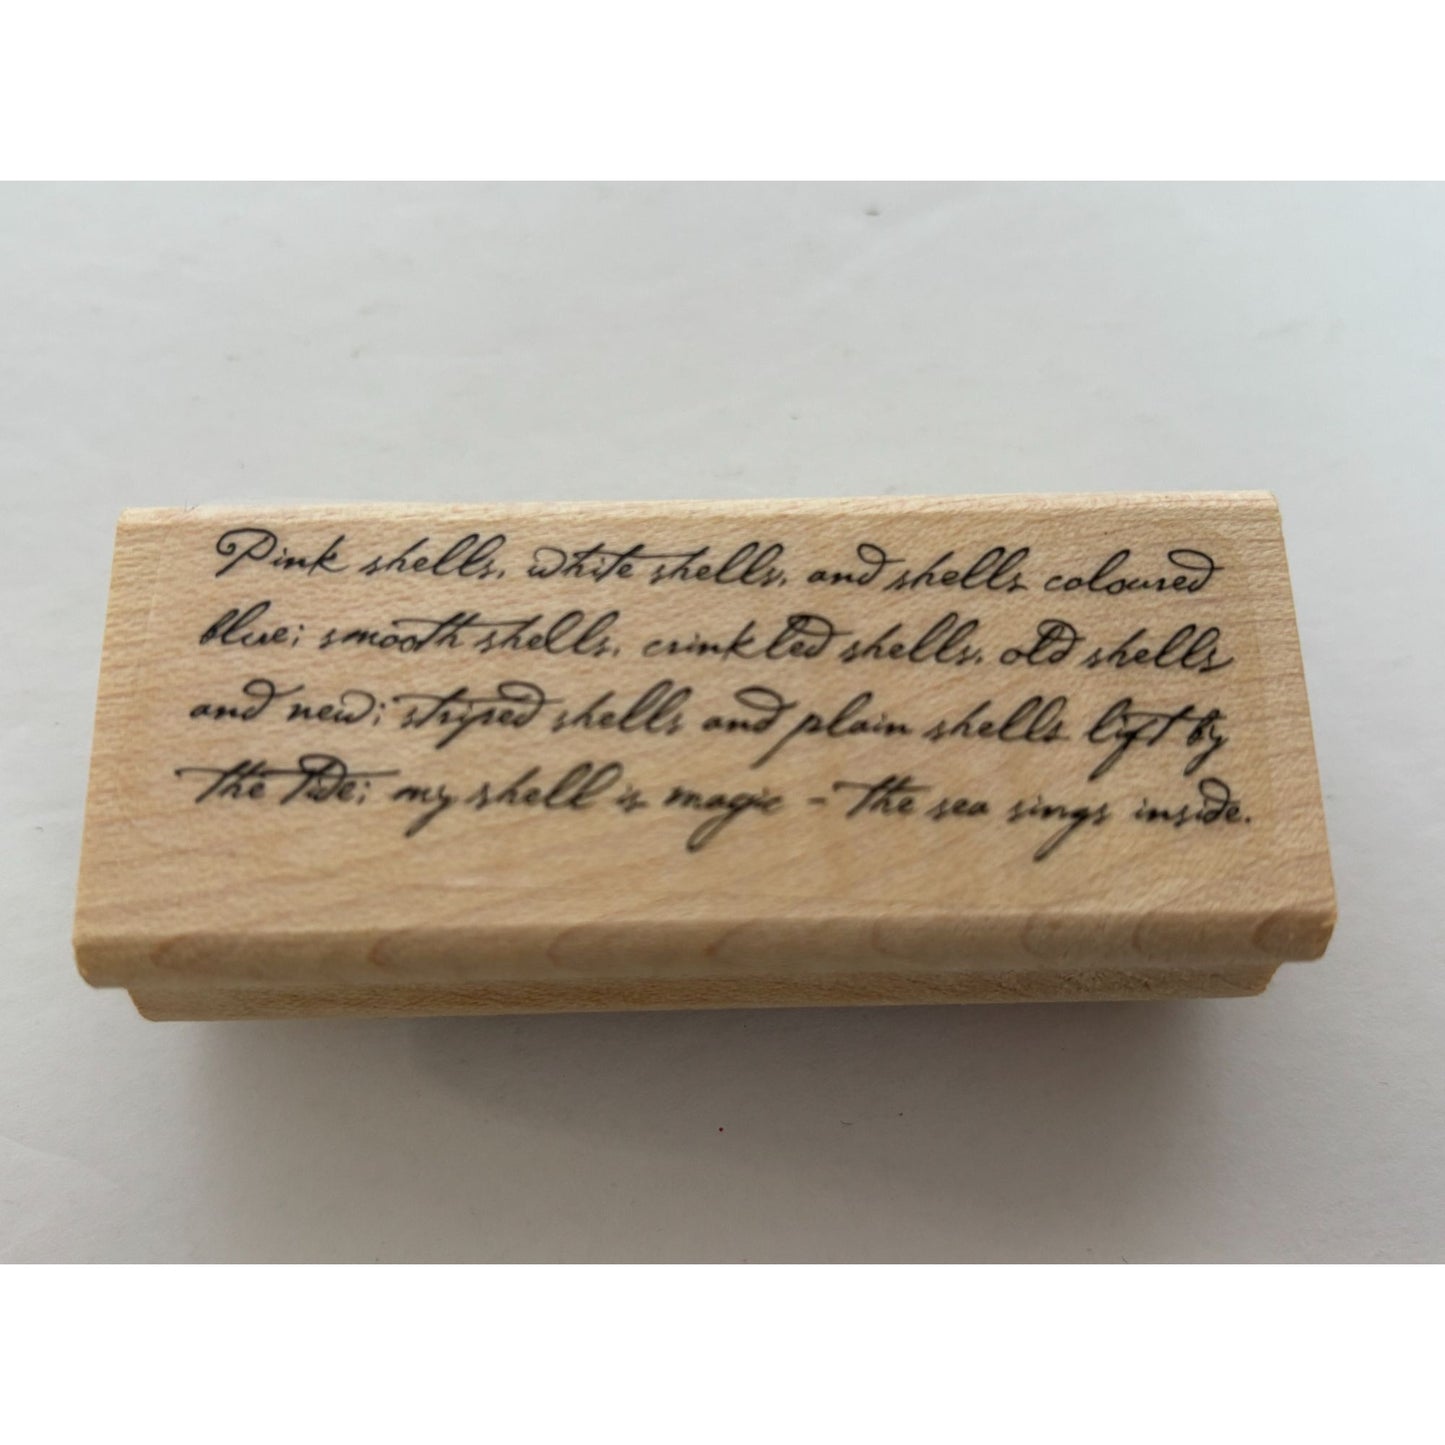 Pink shells, white shells, and shells coloured
blue; smooth shells, crinkled shells, old shells
and new; striped shells and plain shells lift by
the tide; my shell is magic - the sea sings inside.